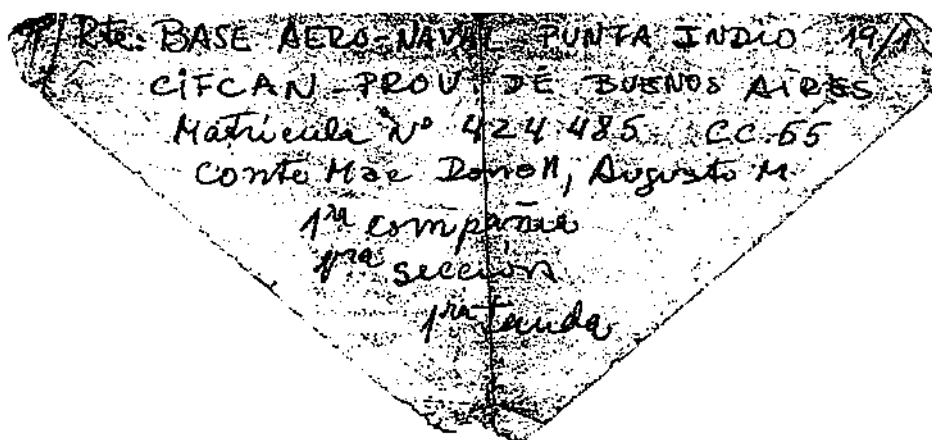 Rte: BASE AERO-NAVAL PUNTA INDIO 19/1
CIFCAN - PROV. DE BUENOS AIRES
Matrícula Nº 424.485 CC.55
Conte Mac Donell, Augusto M
1ra compañia
1ra sección
1ra tanda